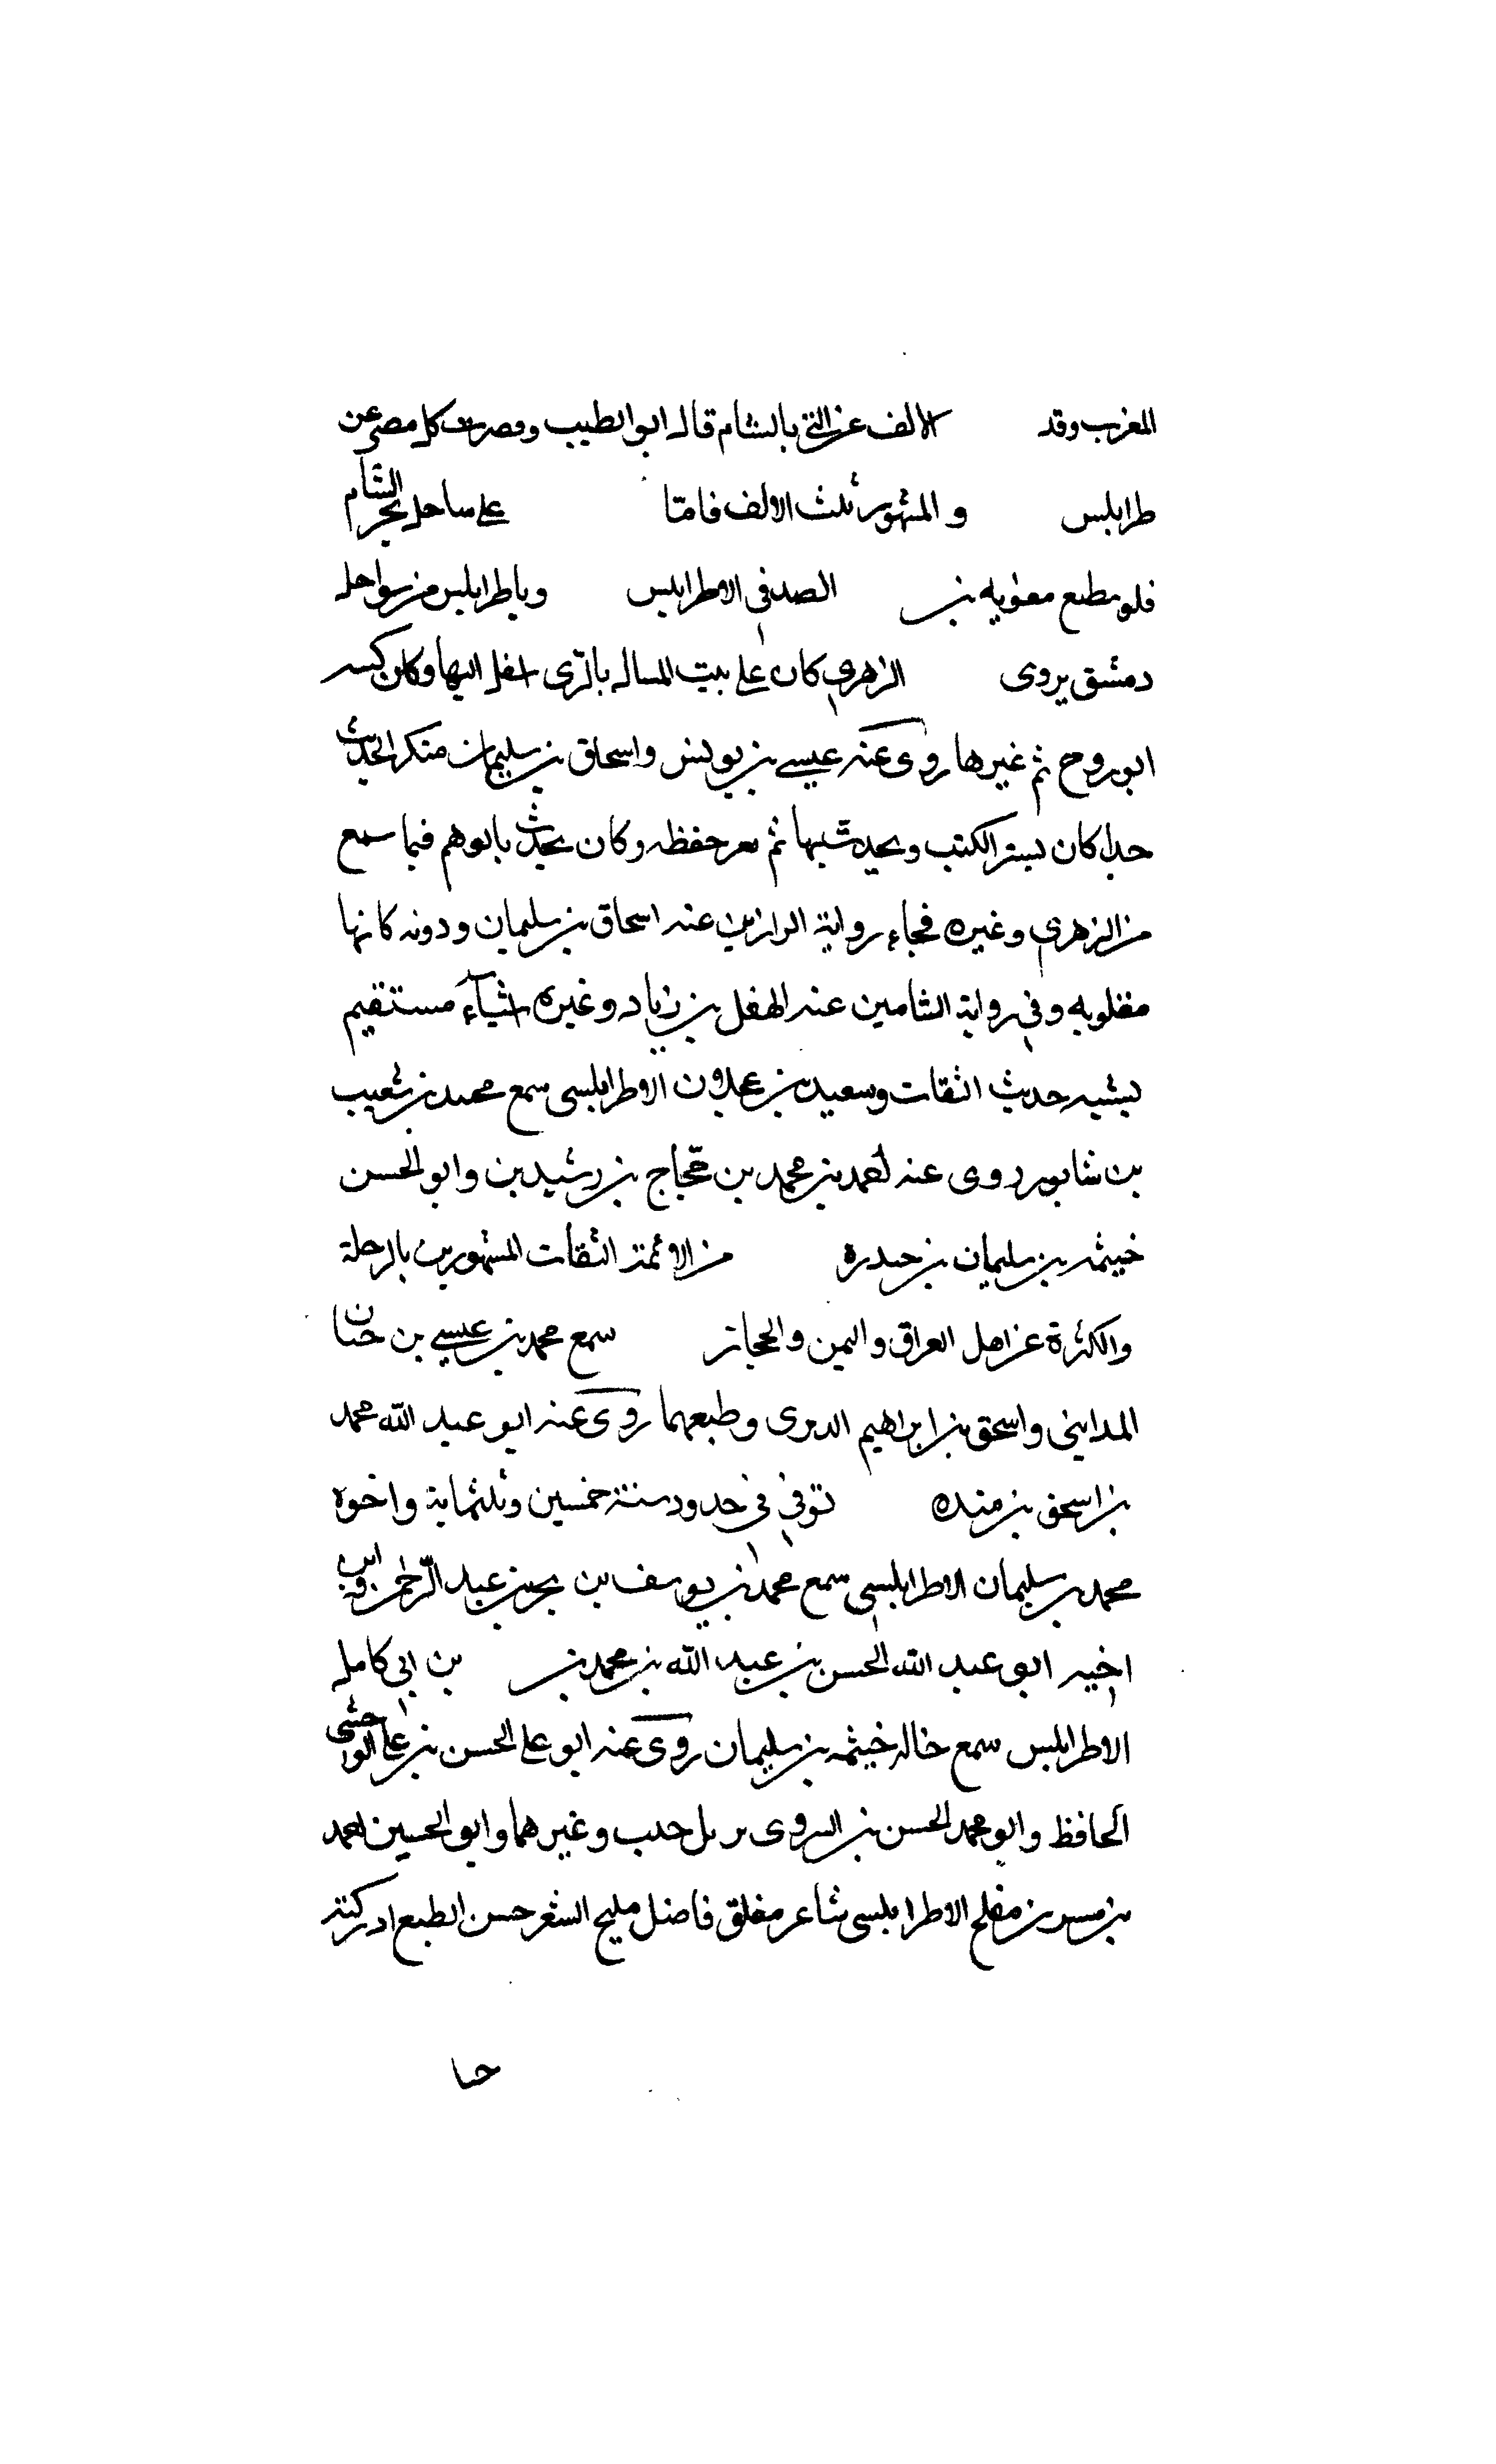 المغرب وقد الالف عن التي بالشام قاله ابو الطيب وقصرت كل مصر عن
طرابلس و المشهور ثلث الالف فامّا على ساحل بحر الشام
معويه بن الصدفي الاطرابلس وباطرابلس من سواحل
دمشق يروى الزهرى كان على بيت المال بالرّى اليها وكان
ابو روح ثم غيرها روى عنه عيسى بن يونس واسحاق بن سليمان منكر الحديث
كان الكتب ويحدث بها ثم حفظه وكان يحدث بالوهم فيما سمع
من الزهرى وغيره فجاء رواية الرازيين عنه اسحاق بن سليمان ودونه كانها
مقلوبه وفي رواية الشامين عنه الهقل بن زياد وغيره اشيآء مستقيم
يشبه حديث الثقات وسعيد بن عجلون الاطرابلسى سمع محمد بن شعيب
بن شابور روى عنه احمد بن محمد بن حجّاج بن رشيدين وابو الحسن
خيثمه بن سليمان بن حيدرة من الائمة الثقات المشهورين بالرحلة
والكثرة عن اهل العراق واليمن والحجاز سمع محمد بن عيسى بن حنان
المدايني واسحق بن ابراهيم الدبرى وطبعهما روى عنه ابو عبد الله محمد
بن اسحق بن منده توفي في حدود سنة خمسين وثلثماية واخوه
محمد بن سليمان الاطرابلسى سمع محمد بن يوسف بن بحر بن عبد الرّحمن وابن
اخيه ابو عبد الله الحسن بن عبد الله بن محمد بن بن ابى كامل
الاطرابلس سمع خاله خيثمه بن سليمان روى عنه ابو على الحسن بن على الوخشى
الحافظ وابو محمد الحسن بن وغيرهما وابو الحسين احمد
بن منير بن مفلح الاطرابلسى شاعر مفلق فاضل مليح الشعر حسن الطبع ادركته